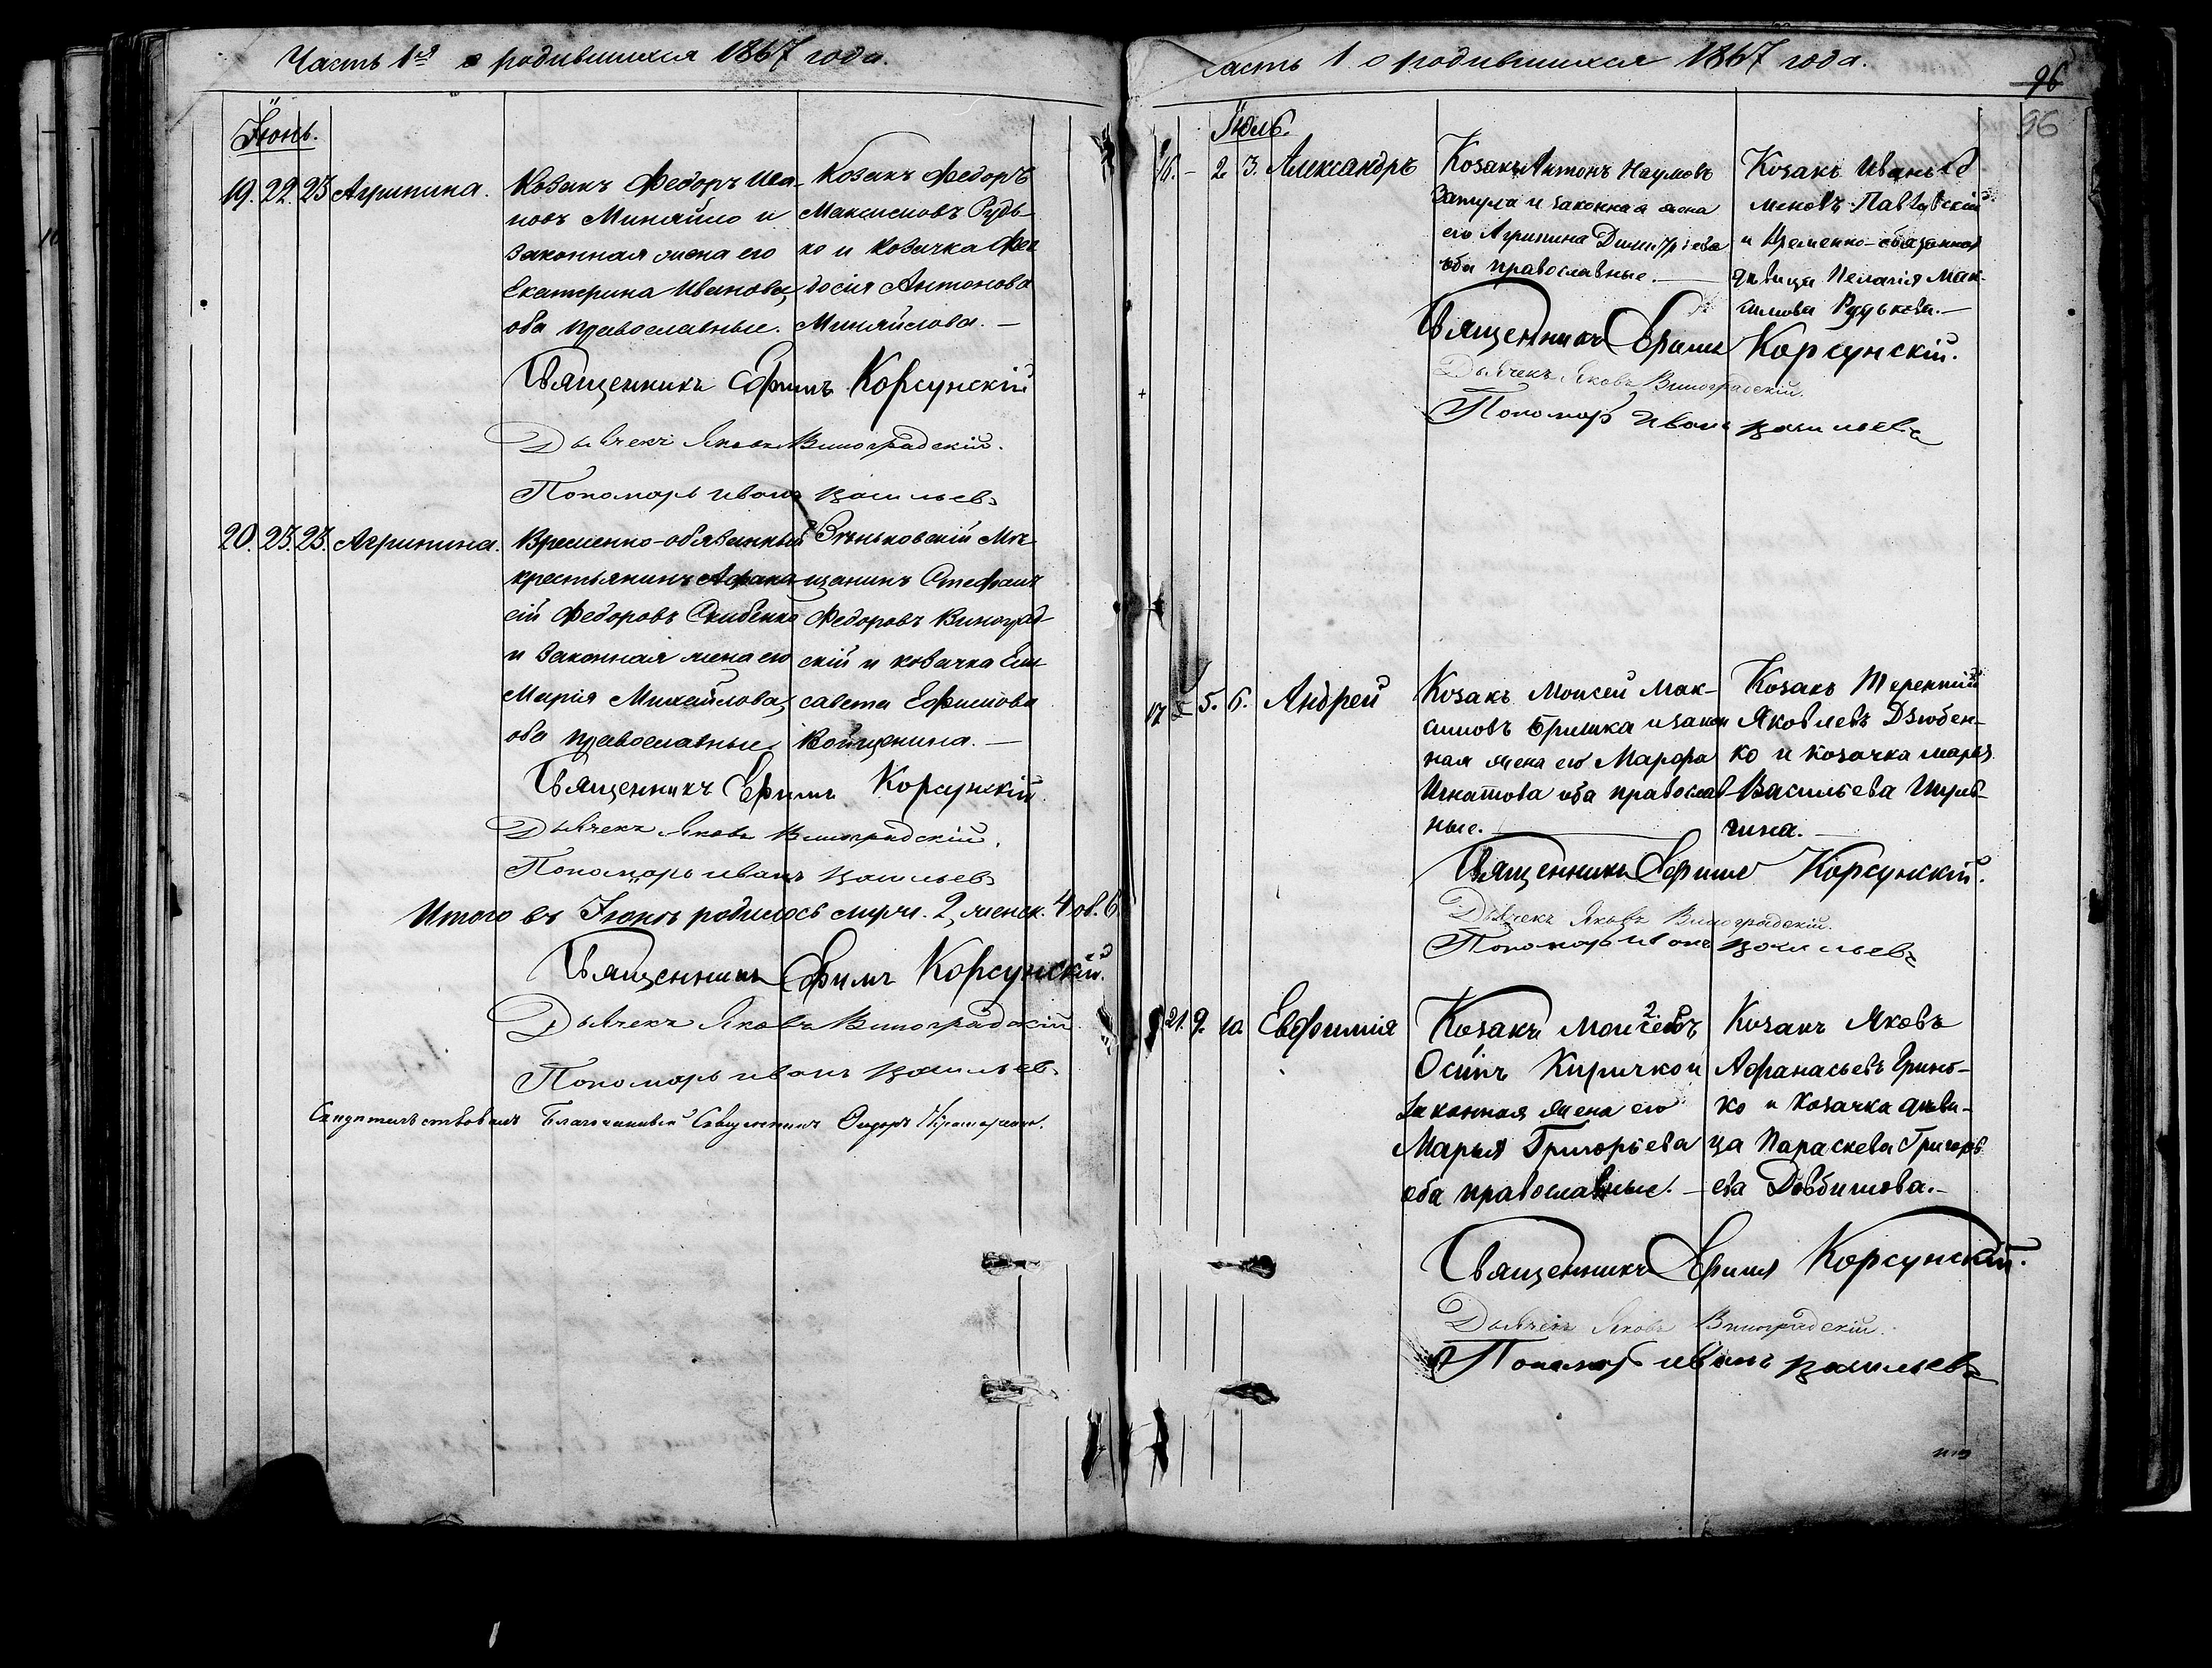 Часть 1я о родившихся 1867 года.
Іюнь.
19. 22. 23 Агрипина.
Козакъ Федоръ Ива-
новъ Миняйло и
законная жена его
Екатерина Иванова,
оба православные.
Козакъ Федоръ
Максимовъ Рудь-
ко и козачка Фео
досія Антонова
Миняйлова. —
Священникъ Ефимъ Корсунскій
Дьячекъ Яковъ Виноградскій.
Пономарь Иванъ Васильевъ
20. 23. 23. Агрипина.
Временно-обязанный
крестьянинъ Афана-
сій Федоровъ Скибенко
и законная жена его
Марія Михайлова,
оба православные.
Зѣньковскій Мѣ-
щанинъ Стефанъ
Федоровъ Виноград-
скій и козачка Ели-
савета Ефимова
Войценина. —
Священникъ Ефимъ Корсунскій
Дьячекъ Яковъ Виноградскій.
Пономарь Иванъ Васильевъ
Итого въ Іюнѣ родилось муж. 2, женск. 4 об. 6
Священникъ Ефимъ Корсунскій.
Дьячекъ Яковъ Виноградскій
Пономарь Иванъ Васильевъ
Свидѣтельствовалъ Благочинный Священникъ
часть 1 о родившихся 1867 года.
96
96
Іюль.
16. — 2. 3. Александръ
Козакъ Антонъ Наумовъ
Запула и законная жена
его Агрипина Димитріева
оба православные. —
Козакъ Иванъ
меновъ Павловскій
и Временно-обязанная
дѣвица Пелагія Мак-
симова Рудькова. —
Священникъ Ефимъ Корсунскій.
Дьячекъ Яковъ Виноградскій.
Пономарь Иванъ Васильевъ
17 5. 6. Андрей
Козакъ Моисей Мак-
симовъ Бришка и закон
ная жена его Марфа
Игнатова оба православ-
ные. —
Козакъ Терентій
Яковлевъ Дзюбен-
ко и козачка Марья
Васильева Шуль-
гина. —
Священникъ Ефимъ Корсунскій.
Дьячекъ Яковъ Виноградскій.
Пономарь Иванъ Васильевъ
21. 9. 10. Евфимія
Козакъ Моисеевъ
Осипъ Киричко и
законная жена его
Марья Григорьева
оба православные. —
Козакъ Яковъ
Афанасьевъ Гринь-
ко и козачка дѣви-
ца Параскева Григорь
ева Довбишова. —
Священникъ Ефимъ Корсунскій.
Дьячекъ Яковъ Виноградскій.
Пономарь Иванъ Васильевъ